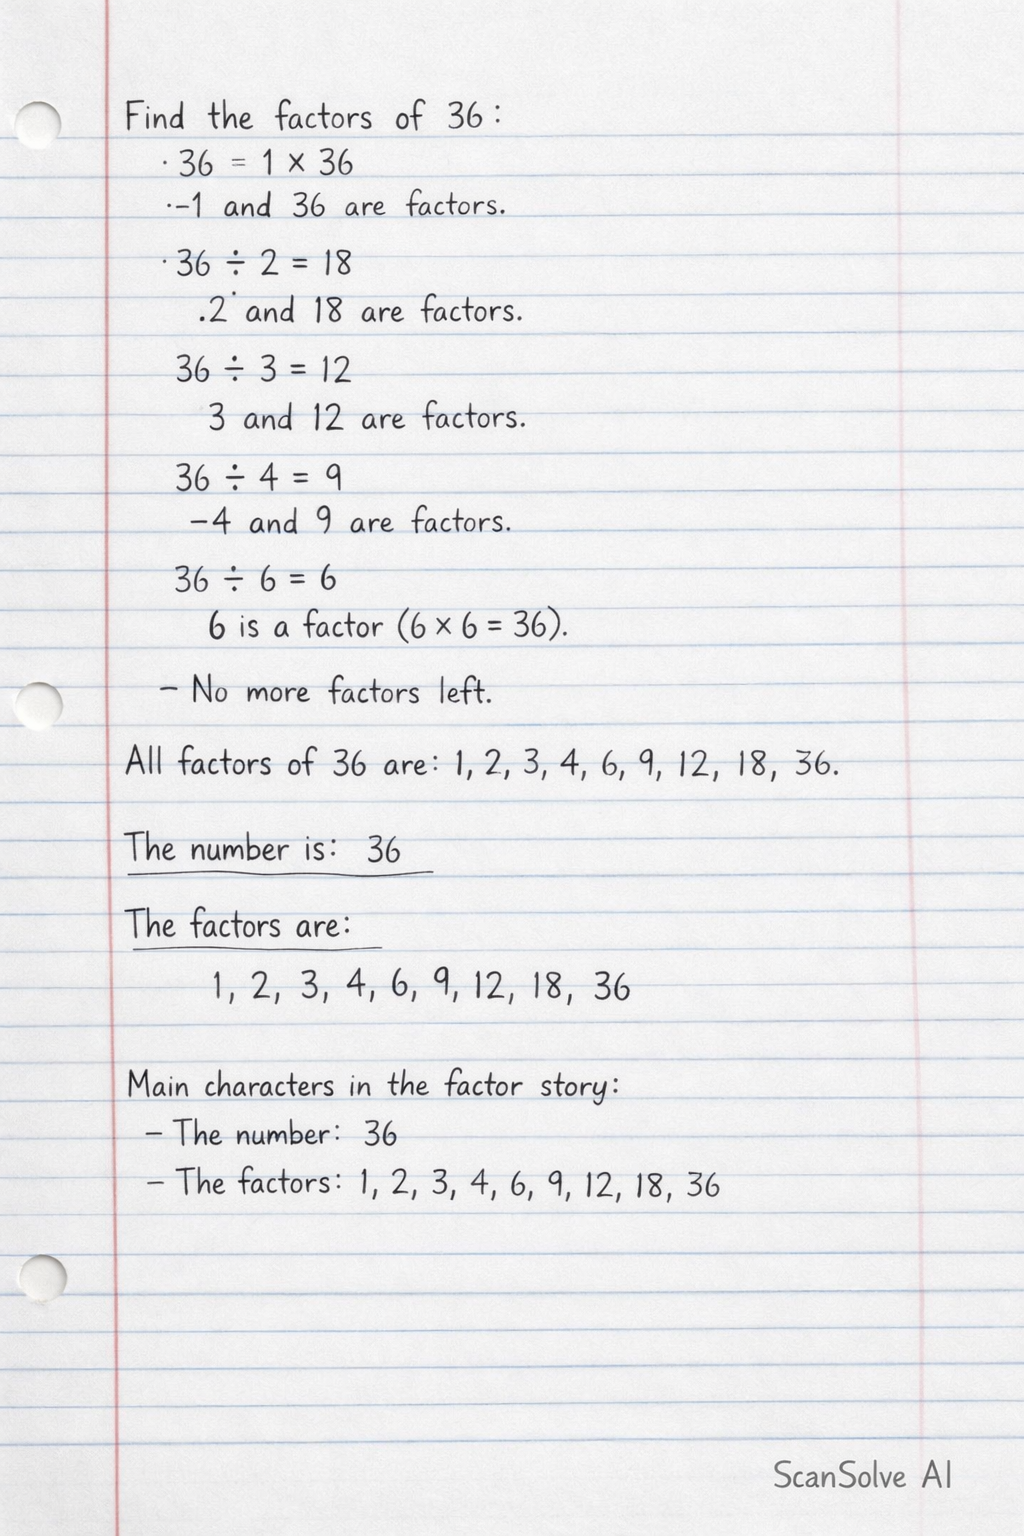 Find the factors of 36:
· 36 = 1 × 36
·-1 and 36 are factors.
· 36 ÷ 2 = 18
.2˙ and 18 are factors.
36 ÷ 3 = 12
3 and 12 are factors.
36 ÷ 4 = 9
-4 and 9 are factors.
36 ÷ 6 = 6
6 is a factor (6 × 6 = 36).
- No more factors left.
All factors of 36 are: 1, 2, 3, 4, 6, 9, 12, 18, 36.
The number is: 36
The factors are:
1, 2, 3, 4, 6, 9, 12, 18, 36
Main characters in the factor story:
- The number: 36
- The factors: 1, 2, 3, 4, 6, 9, 12, 18, 36
ScanSolve AI